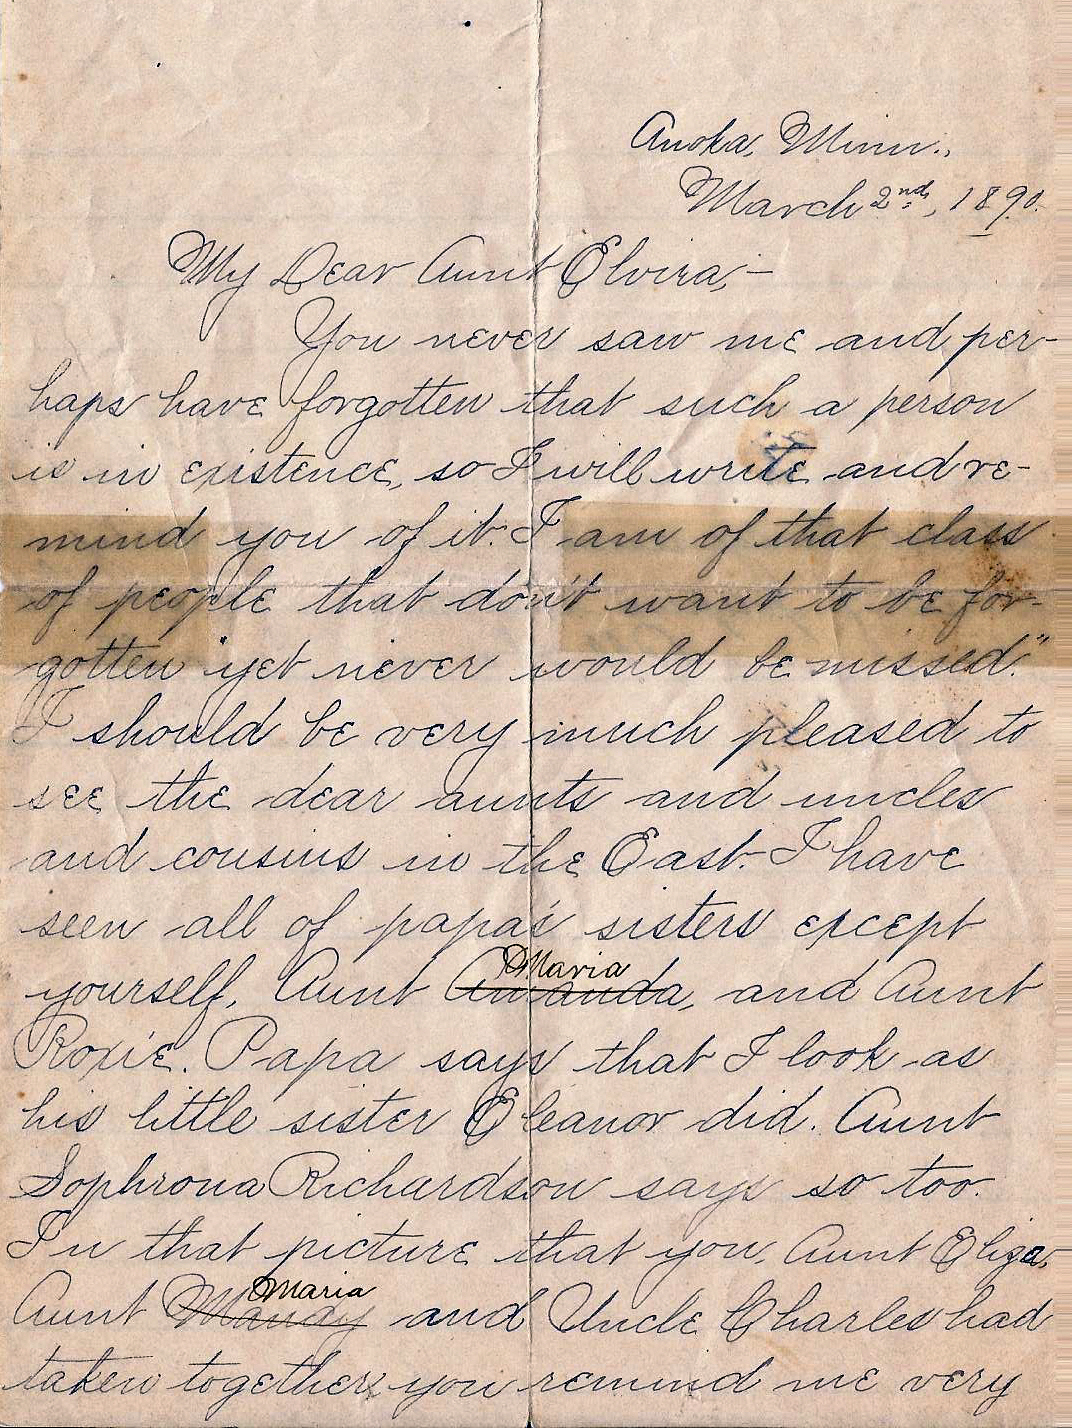 Anoka, Minn.,
March 2nd, 1890.
My Dear Aunt Elvira,—
You never saw me and per-
haps have forgotten that such a person
is in existence, so I will write and re-
mind you of it. I am of that class
of people that don't want to be for-
gotten "yet never would be missed."
I should be very much pleased to
see the dear aunts and uncles
and cousins in the East. I have
seen all of papa's sisters except
Maria
yourself, Aunt Amanda, and Aunt
Roxie. Papa says that I look as
his little sister Eleanor did. Aunt
Sophrona Richardson says so too.
In that picture that you, Aunt Eliza,
Maria
Aunt Mandy and Uncle Charles had
taken together, you remind me very